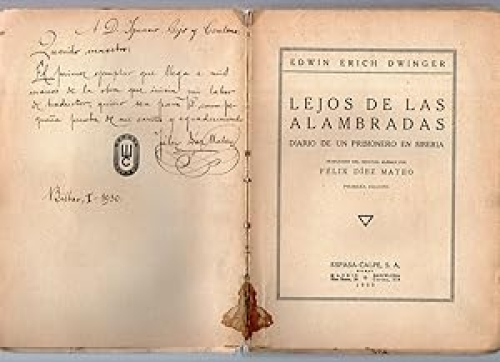 A D. Ignacio
Querido maestro:
El primer ejemplar que llega a mis
manos de la obra que inicia mi labor
de traductor, quiero sea para ti, como pe-
queña prueba de mi cariño y agradecimiento
Félix Díez Mateo
Bilbao, I-1930.
EDWIN ERICH DWINGER
LEJOS DE LAS
ALAMBRADAS
DIARIO DE UN PRISIONERO EN SIBERIA
TRADUCCIÓN DEL ORIGINAL ALEMÁN POR
FÉLIX DÍEZ MATEO
PRIMERA EDICIÓN
ESPASA-CALPE, S. A.
BILBAO
MADRID BARCELONA